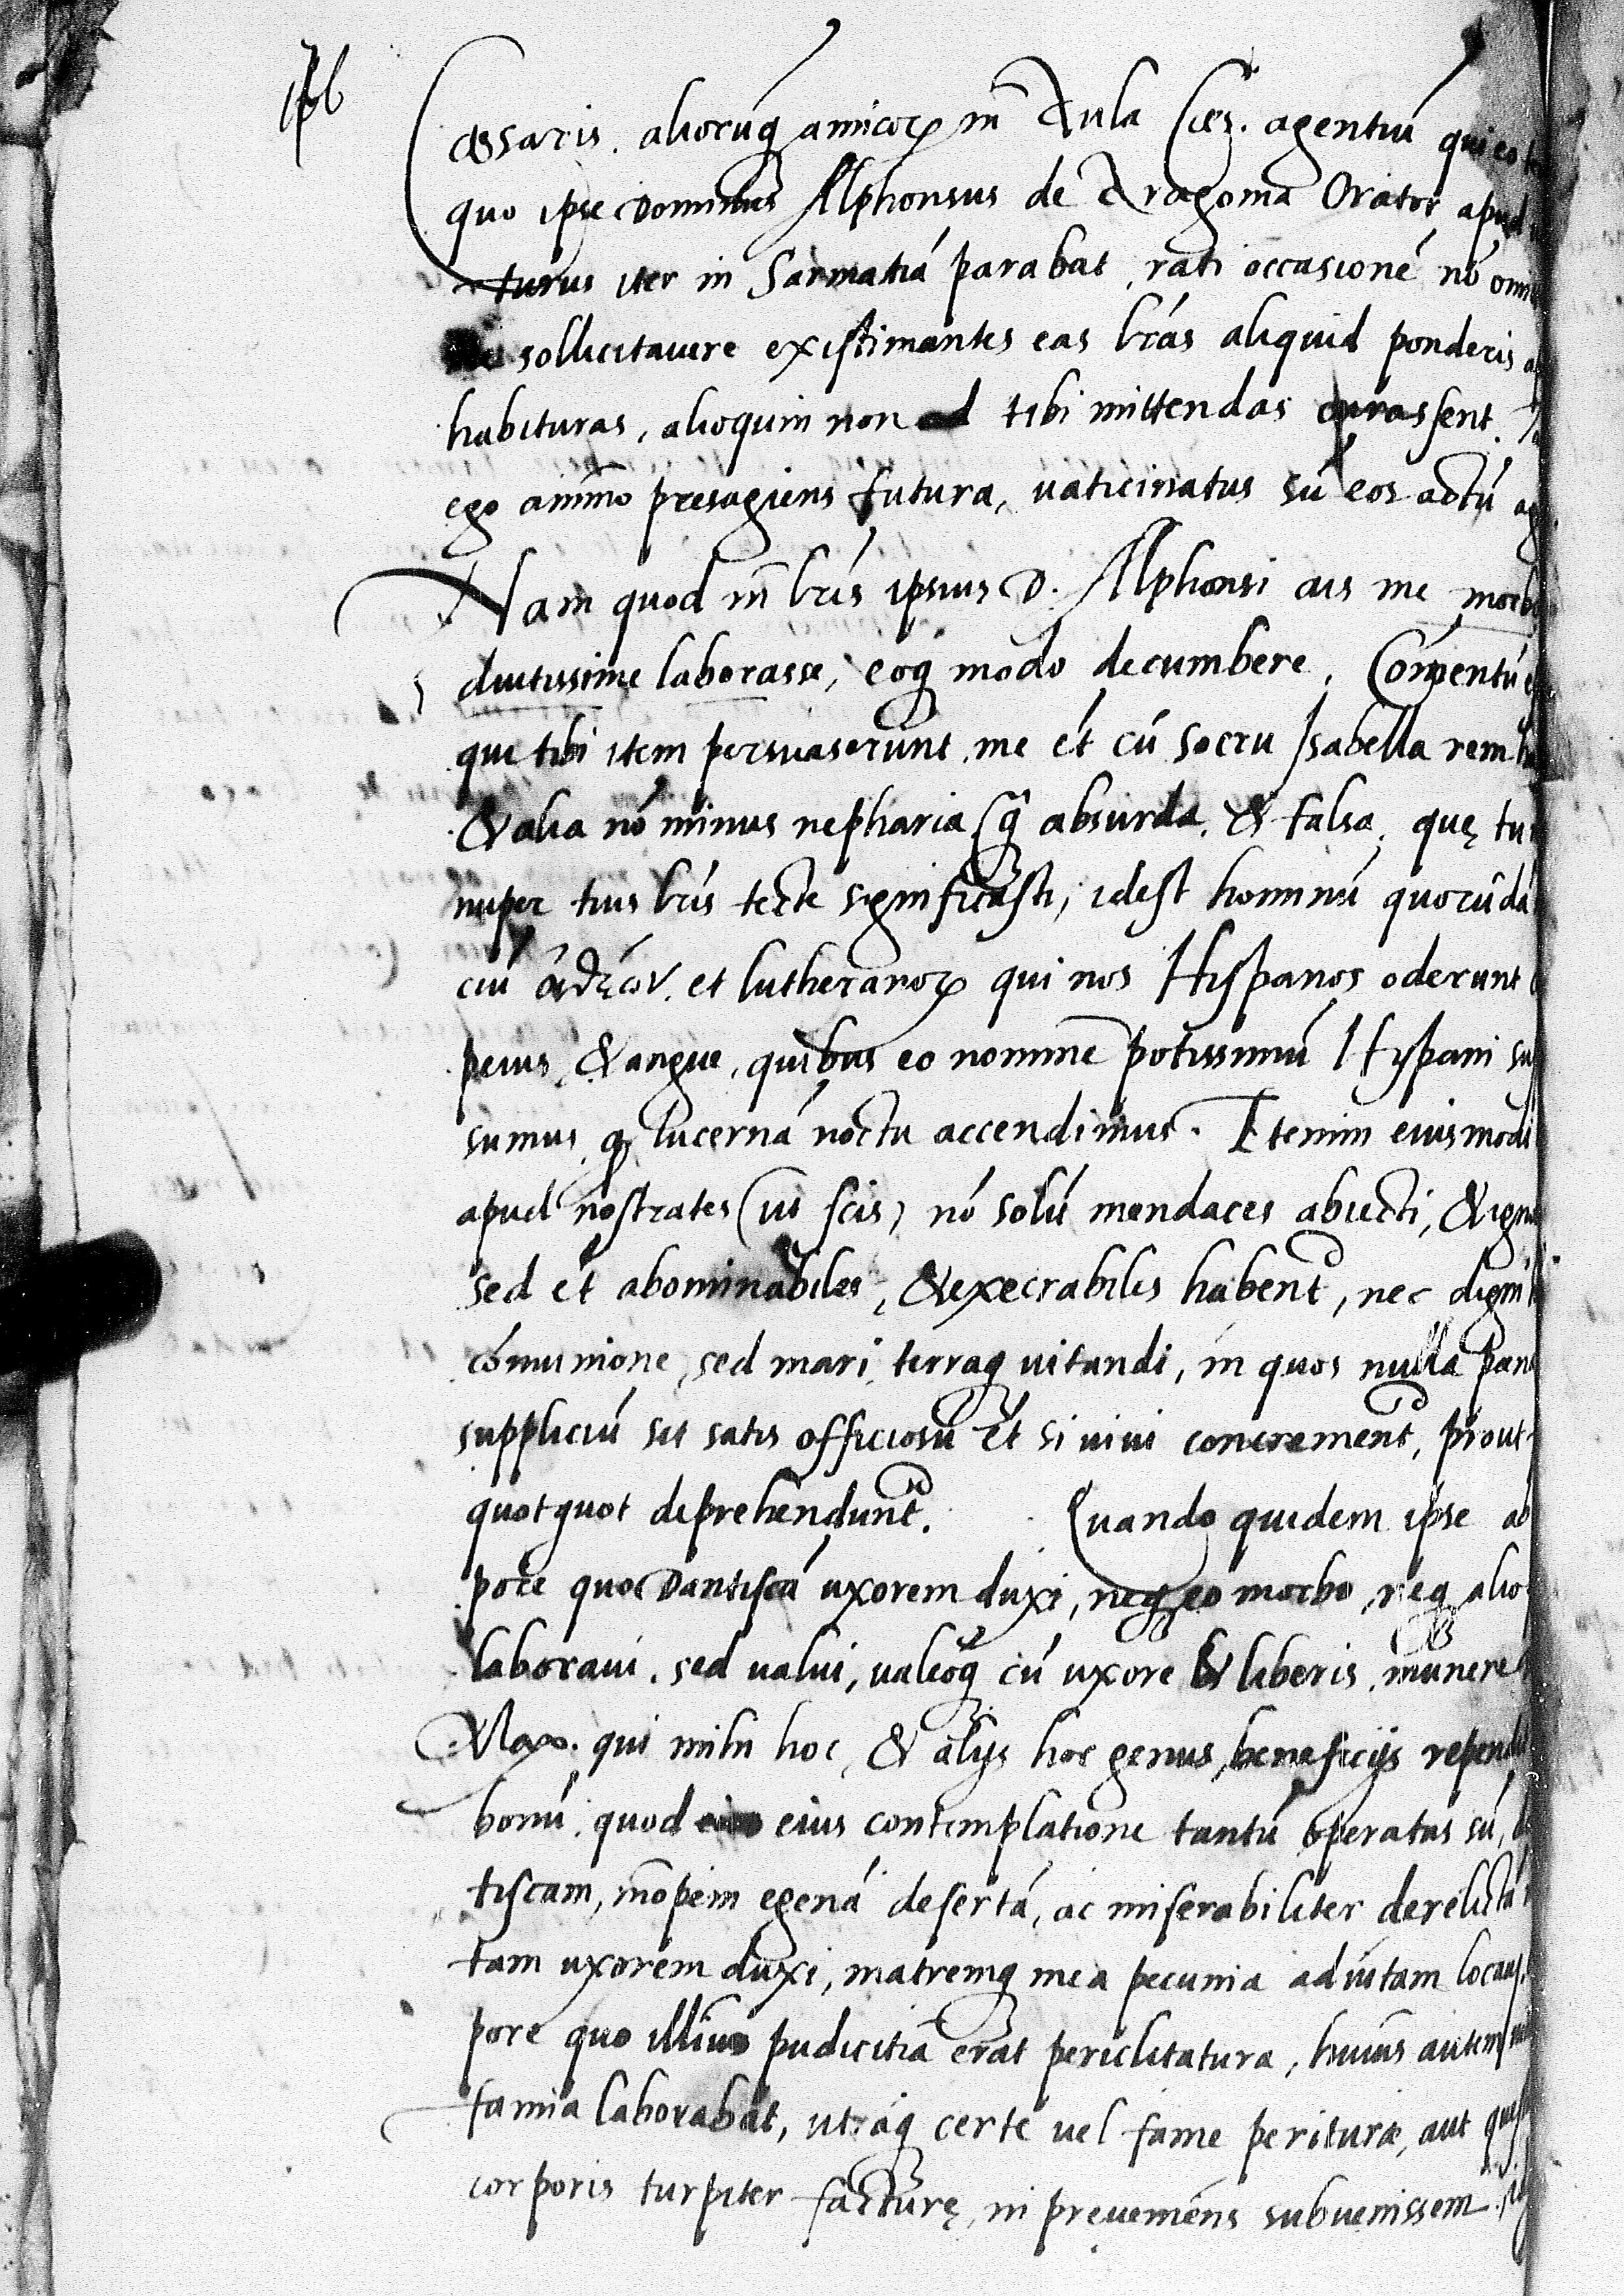 Cęsaris. aliorumq amicoꝝ in Aula Cęs. agentiú qui eo
quo ipse Dominus Alphonsus de Aragonia Orator apud
turus iter in Sarmatiá parabat, rati occasioné nó
sollicitauere existimantes eas lrás aliquid ponderis
habituras, alioquin non tibi mittendas curassent.
ego animo presagiens futura, uaticinatus sú eos actú
Nam quod in lris ipsius D. Alphonsi ais me morbo
diutissime laborasse, eoq modo decumbere. Compentú
que tibi item persuaserunt, me et cú socru Isabella rem
& alia nó minus nepharia q̃ absurda, & falsa, quę tu
nuper tuis lris tecte significasti, idest hominú quorúdá
et lutheranoꝝ qui nos Hispanos oderunt
peius, & angue, quibus eo nomine potissimú Hispani
sumus, lucerná noctu accendimus. Etenim eiusmodi
apud nostrates (ut scis) nó solú mendaces abiecti, &
sed et abominabiles, & execrabiles habent, nec digni
cómunione, sed mari, terraq uitandi, in quos nulla
suppliciú sit satis officiosú Et si uiui concrement, prout
quotquot deprehendunt. Quando quidem ipse ab
pore quo Dantiscá uxorem duxi, neq eo morbo, neq alio
laboraui. sed ualui, ualeoq cú uxore & liberis, munere
Max. qui mihi hoc, & alijs hoc genus, beneficijs
bonú, quod eius contemplatione tantú operatus sú,
tiscam, inopem egená desertá, ac miserabiliter derelictá
tam uxorem duxi, matremq mea pecunia adiutam
pore quo illius pudicitia erat periclitatura, huius autem
famia laborabat, utraq certe uel fame periturę, aut
corporis turpiter facturę, ni preueniens subuenissem.